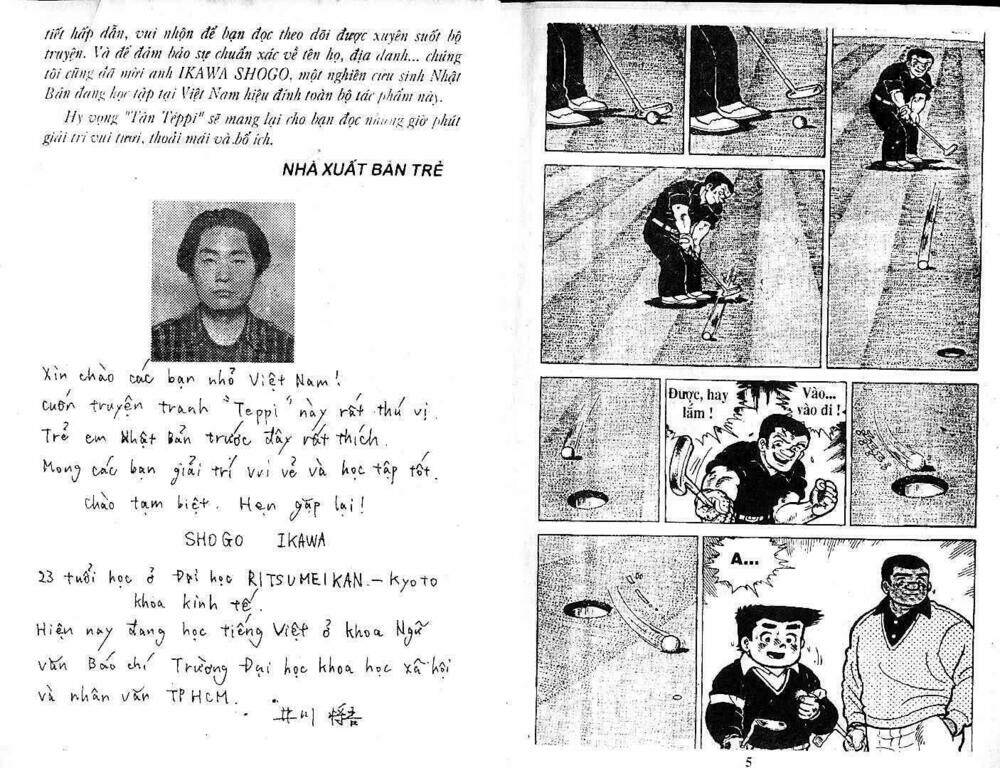 tiết hấp dẫn, vui nhộn để bạn đọc theo dõi được xuyên suốt bộ
truyện. Và để đảm bảo sự chuẩn xác về tên họ, địa danh... chúng
tôi cũng đã mời anh IKAWA SHOGO, một nghiên cứu sinh Nhật
Bản đang học tập tại Việt Nam hiệu đính toàn bộ tác phẩm này.
Hy vọng "Tân Teppi" sẽ mang lại cho bạn đọc những giờ phút
giải trí vui tươi, thoải mái và bổ ích.
NHÀ XUẤT BẢN TRẺ
Xin chào các bạn nhỏ Việt Nam!
Cuốn truyện tranh "Teppi" này rất thú vị.
Trẻ em Nhật Bản trước đây rất thích.
Mong các bạn giải trí vui vẻ và học tập tốt.
Chào tạm biệt. Hẹn gặp lại!
SHOGO IKAWA
23 tuổi học ở Đại học RITSUMEIKAN - Kyoto
khoa kinh tế.
Hiện nay đang học tiếng Việt ở khoa Ngữ
văn Báo chí Trường Đại học khoa học xã hội
và nhân văn TPHCM.
井川 将吾
Được, hay
lắm !
Vào...
vào đi !
A...
5